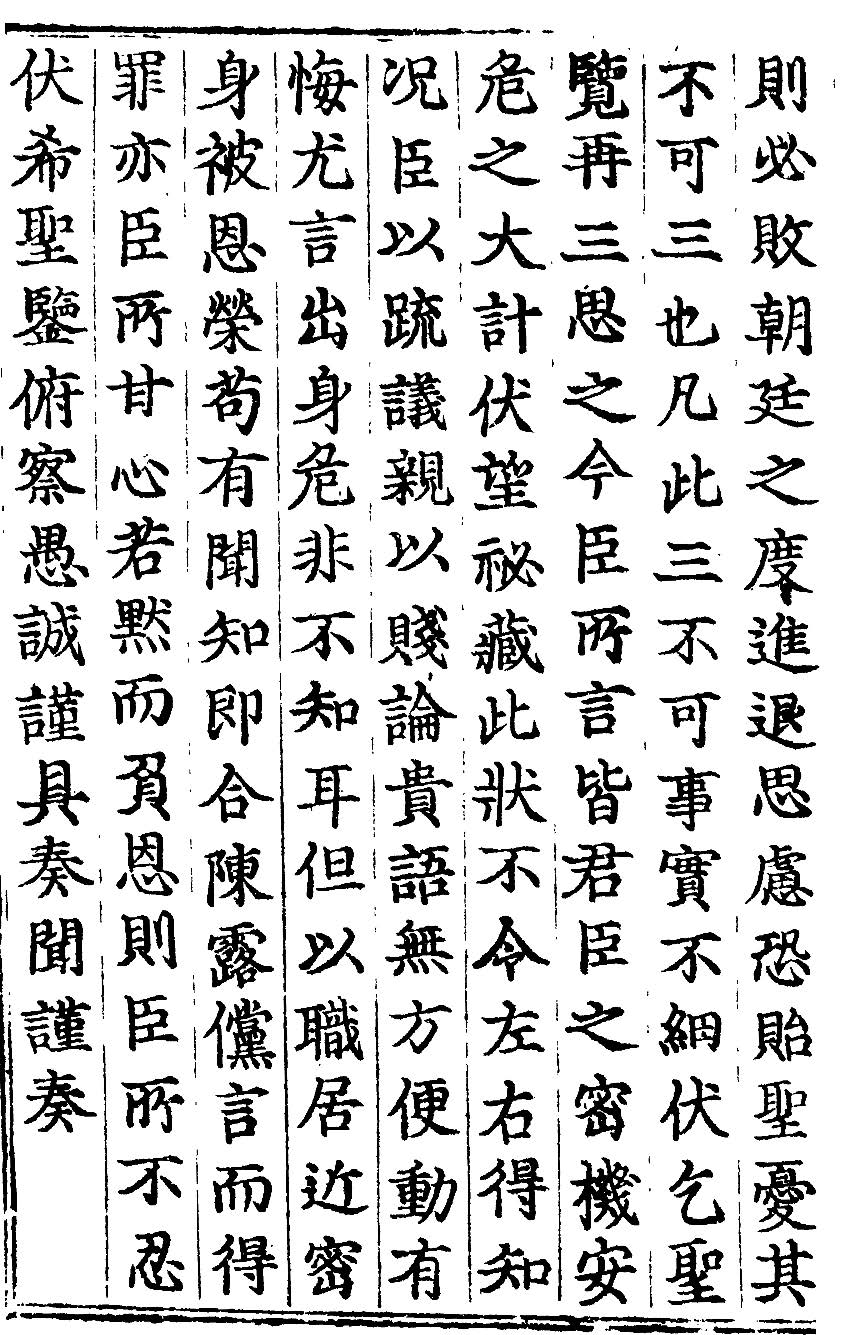 則必敗朝廷之度進退思慮恐貽聖憂其
不可三也凡此三不可事實不細伏乞聖
覽再三思之今臣所言皆君臣之密機安
危之大計伏望祕藏此狀不令左右得知
况臣以疏議親以賤論貴語無方便動有
悔尤言出身危非不知耳但以職居近密
身被恩榮苟有聞知即合陳露儻言而得
罪亦臣所甘心若默而負恩則臣所不忍
伏希聖鑒俯察愚誠謹具奏聞謹奏